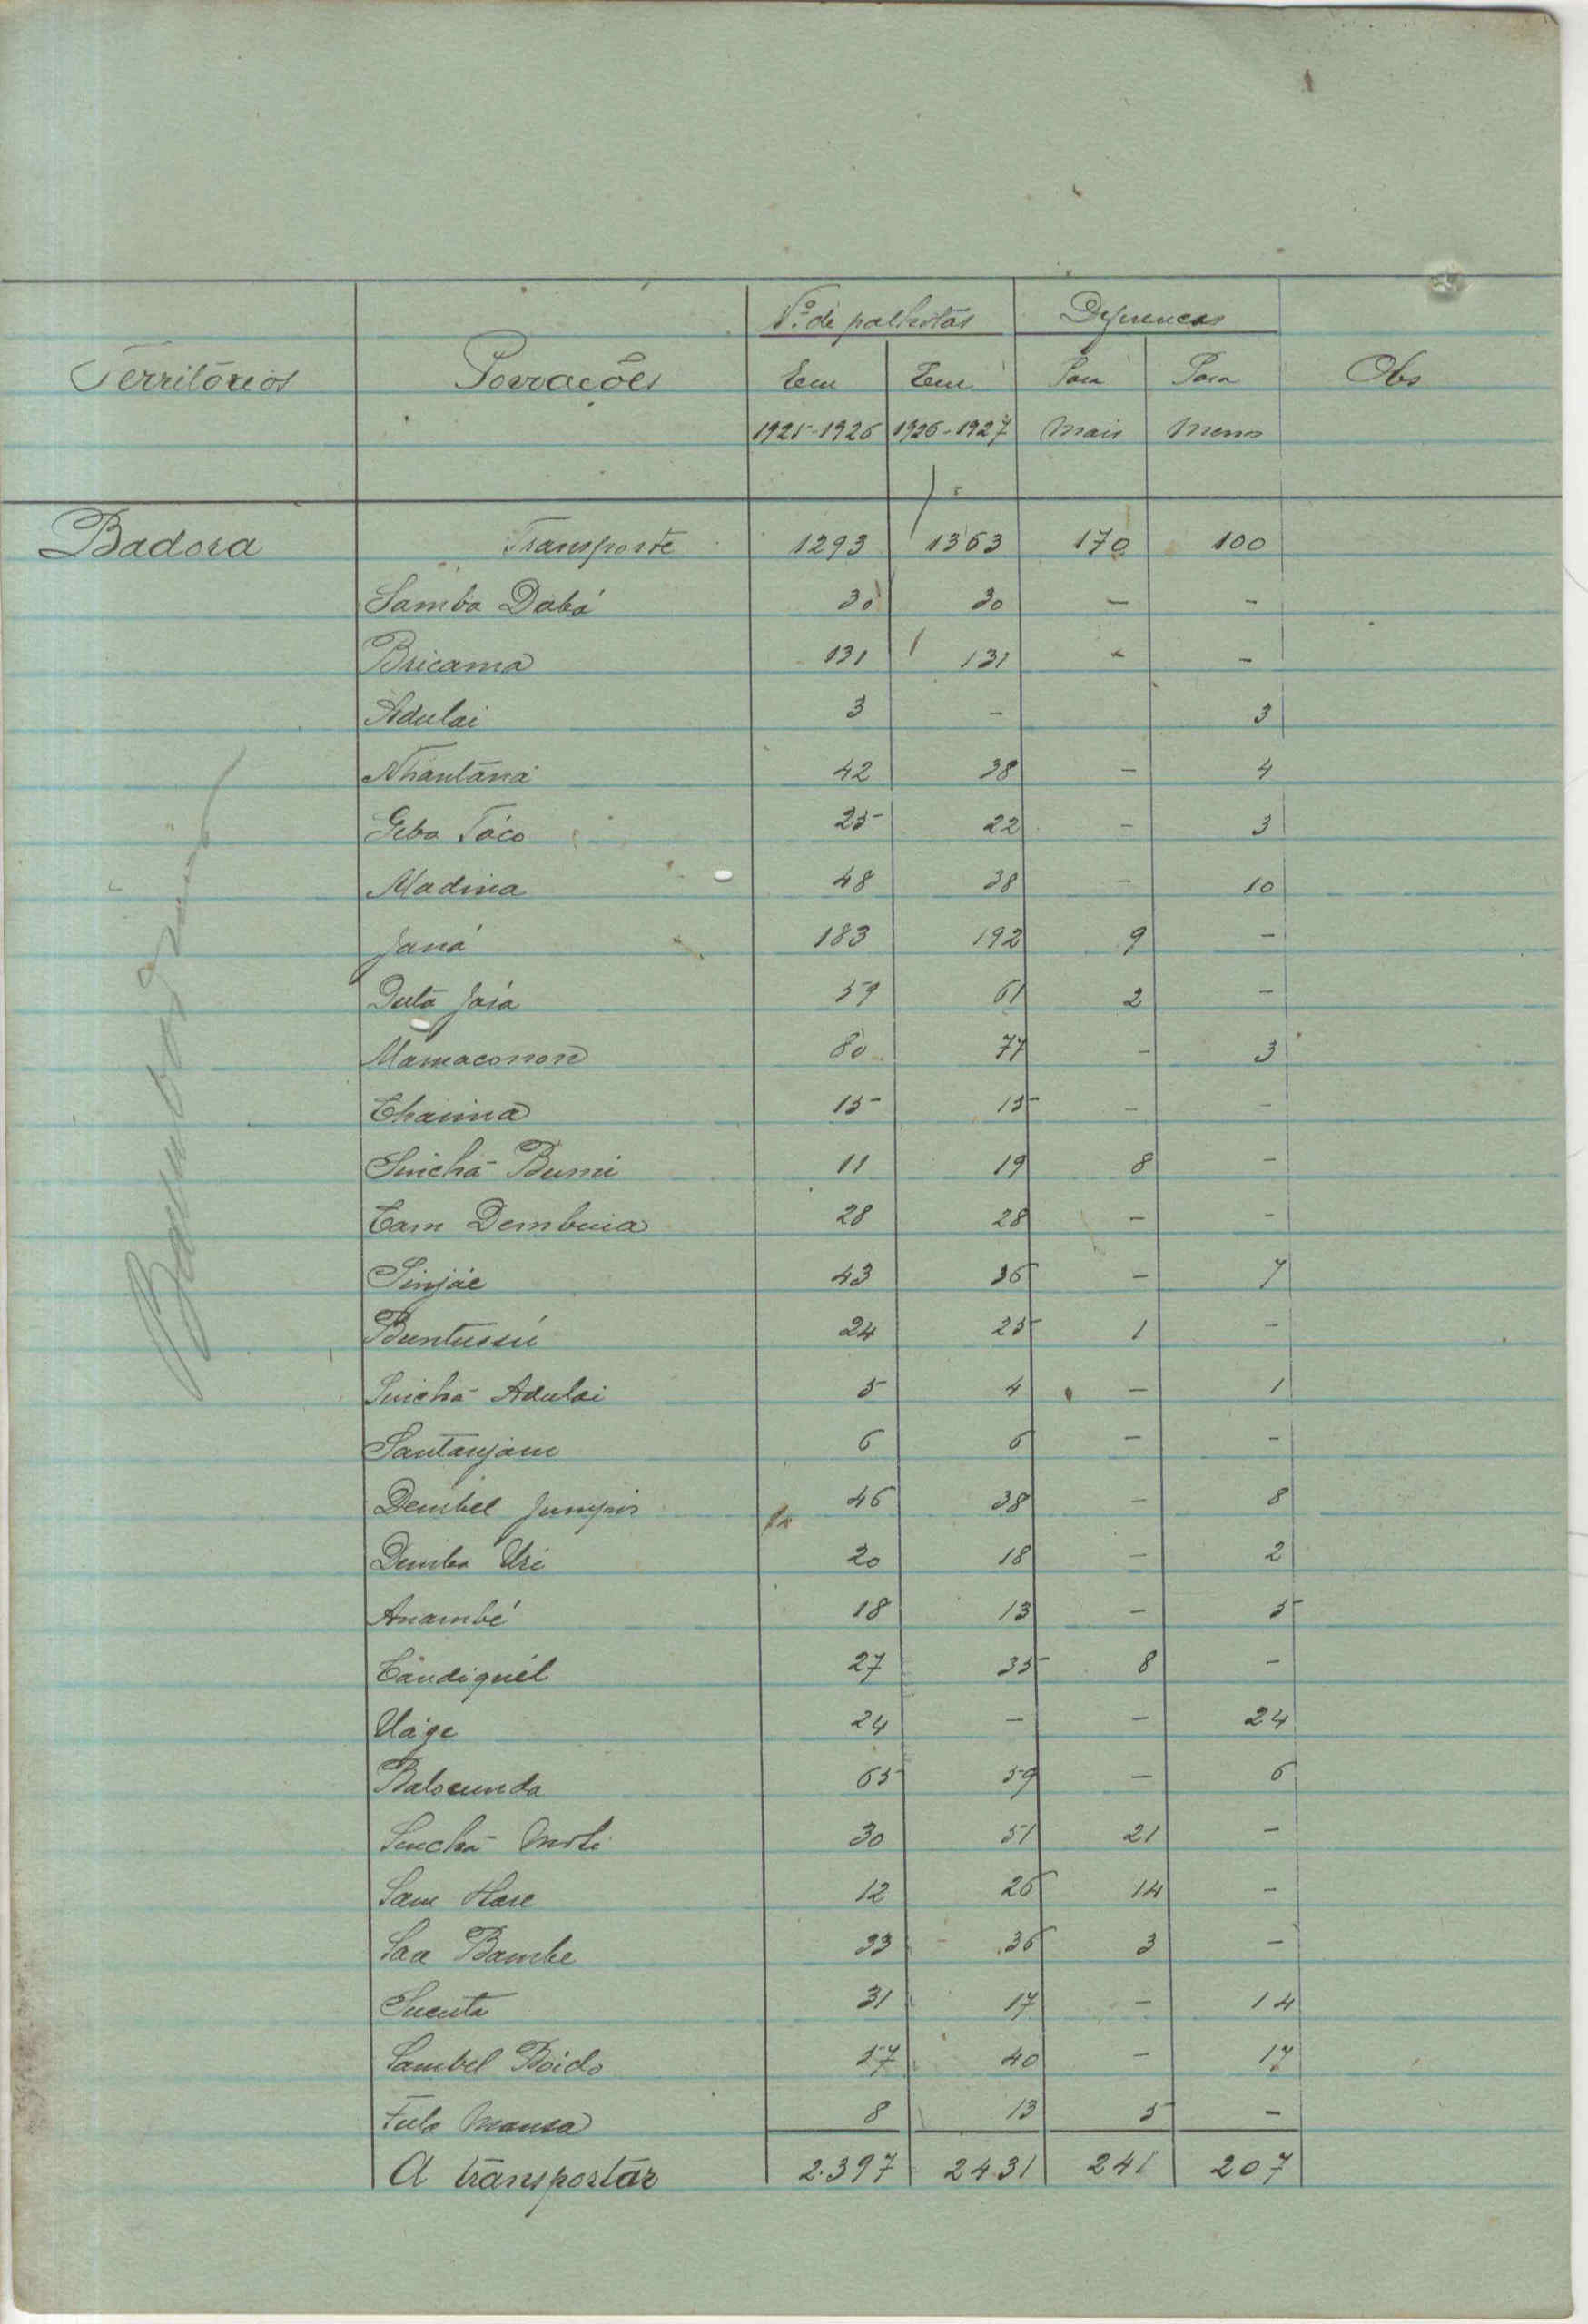 Nº de palhotas Diferenças
Territórios Povoações Em Em Para Para Obs
1925-1926 1926-1927 Mais Menos
Badora Transporte 1293 1363 170 100
Samba Dabá 30 30 - -
Bricama 131 131 - -
Adulai 3 - 3
Nhantãna 42 38 - 4
Geba Tóco 25 22 - 3
Madina 48 38 - 10
Janá 183 192 9 -
Dutá Jara 59 61 2 -
Mamaconon 80 77 - 3
Chaima 15 15 - -
Sinchã Bumi 11 19 8 -
Cam Dembuia 28 28 - -
Sinjáe 43 36 - 7
Buntussú 24 25 1 -
Sinchã Adulai 5 4 - 1
Santanjam 6 6 - -
Dembel 46 38 - 8
Demba Uri 20 18 - 2
Anambé 18 13 - 5
Candiguél 27 35 8 -
Uáge 24 - - 24
Balocunda 65 59 - 6
Sinchã 30 51 21 -
Sam 12 26 14 -
Saa Bambe 33 36 3 -
Sucuta 31 17 - 14
Sambel Boido 57 40 - 17
Fulo Mansa 8 13 5 -
A transportar 2.397 2431 241 207